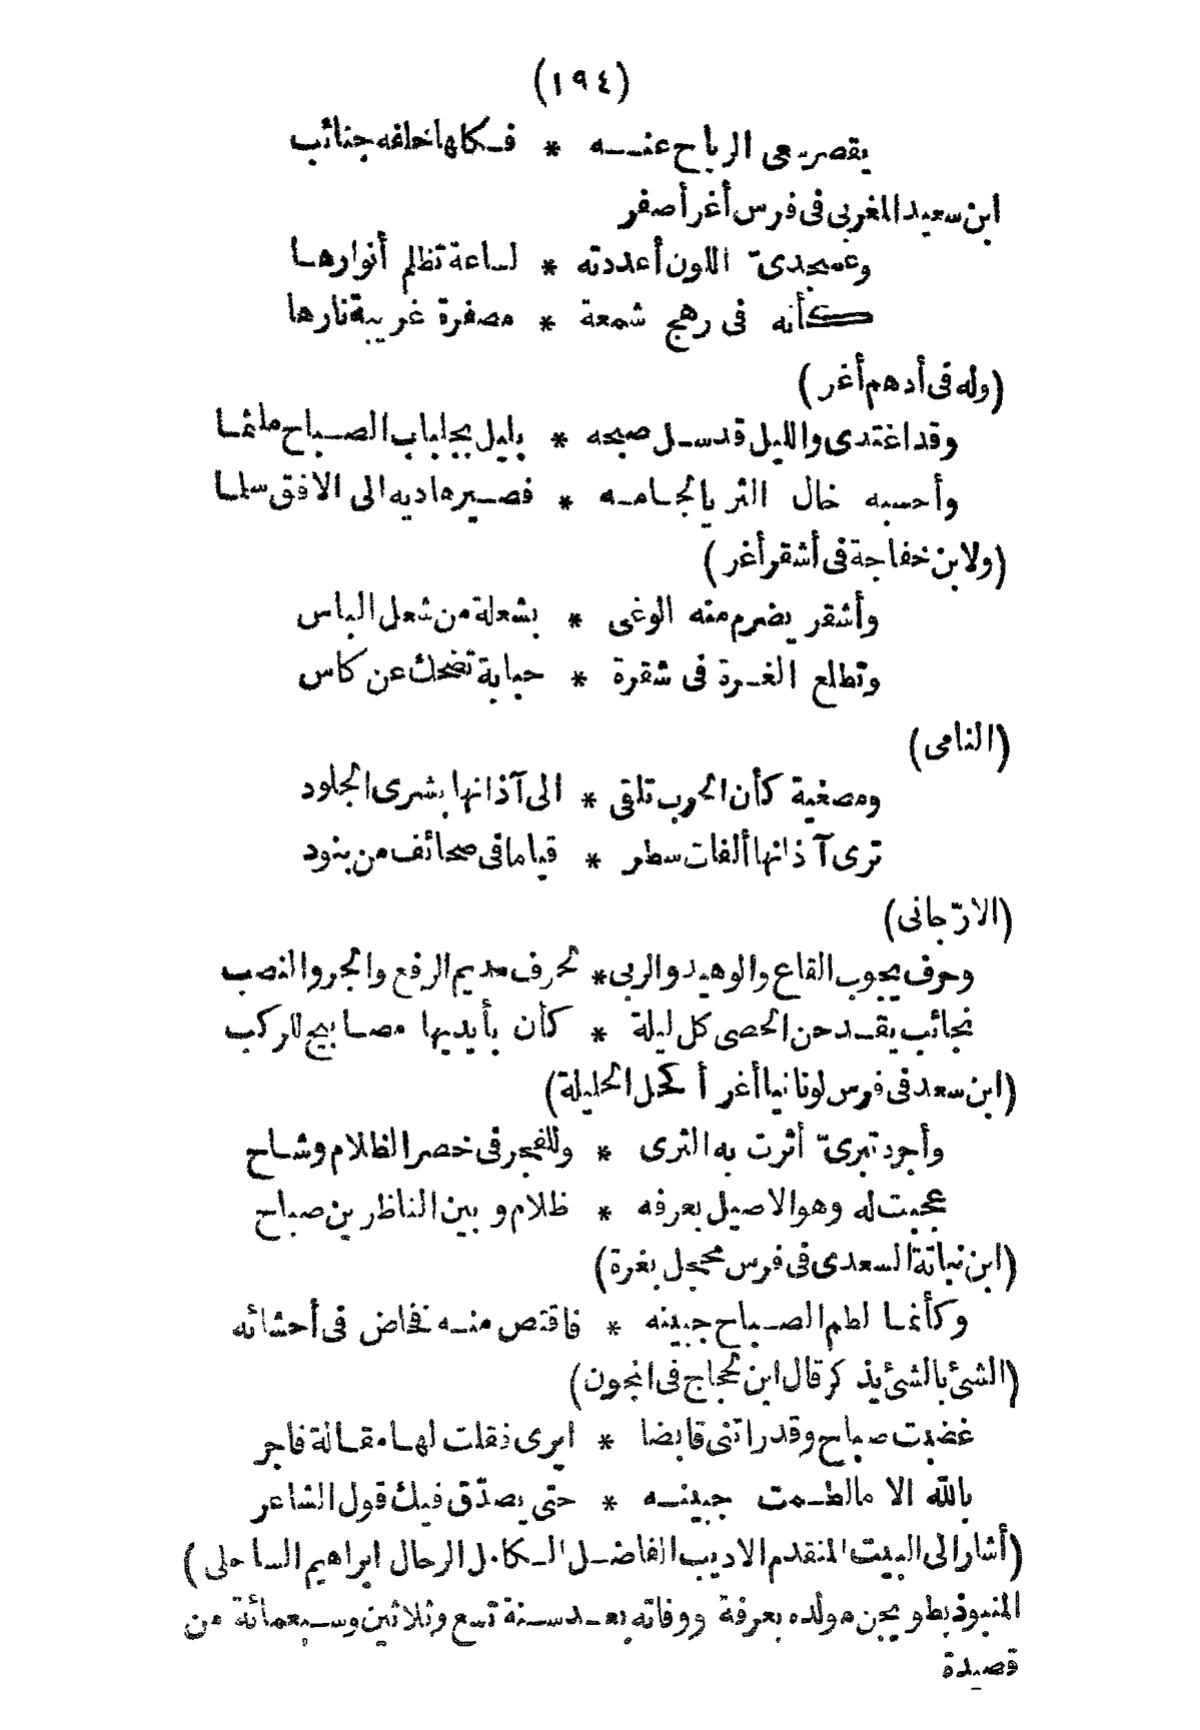 (١٩٤)
يقصر جرى الرياح عنه * فكلها خلفه جنائب
ابن سعيد المغربى فى فرس أغر أصفر
وعسجدىّ اللون أعددته * لساعة تظلم أنوارها
كأنه فى رهج شمعة * مصفرة غريبة نارها
(وله فى أدهم أغر)
وقد اغتدى والليل قد سل صبحه * بليل بجلباب الصباح ملثما
وأحسبه خال الثريا لجامه * فصير هاديه الى الافق سلما
(ولابن خفاجة فى أشقر أغر)
وأشقر يضرم منه الوغى * بشعلة من شعل الباس
وتطلع الغرة فى شقرة * حبابة تضحك عن كاس
(النامى)
ومصغية كأن الحرب تلقى * الى آذانها بشرى الجلود
ترى آذانها ألفات سطر * قياما فى صحائف من بنود
(الارّجانى)
وحرف يجوب القاع والوهيد والربى * لحرف مديم الرفع والجر والنصب
نجائب يقدحن الحصى كل ليلة * كأن بأيديها مصابيح للركب
(ابن سعد فى فرس لونانيا أغر أكحل الحليلة)
وأجرد تبرىّ أثرت به الثرى * وللفجر فى خصر الظلام وشاح
عجبت له وهو الاصيل بعرفه * ظلام وبين الناظرين صباح
(ابن نباتة السعدى فى فرس محجل بغرة)
وكأنما لطم الصباح جبينه * فاقتص منه فخاض فى أحشائه
(الشئ بالشئ يذكر قال ابن لحجاج فى المجون)
غضبت صباح وقد رأتنى قابضا * ايرى فقلت لها مقالة فاجر
بالله الا مالطمت جبينه * حتى يصدّق فيك قول الشاعر
(أشار الى البيت المتقدم الاديب الفاضل الكامل الرحال ابراهيم الساحلى)
المنبوذ بطويجن مولده بعرفة ووفاته بعد سنة تسع وثلاثين وسبعمائة من
قصيدة